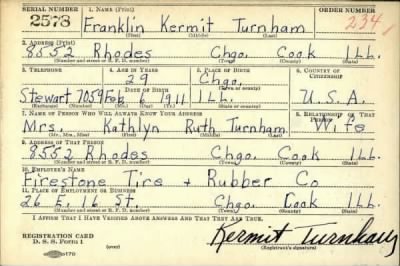 SERIAL NUMBER 1. NAME (Print) ORDER NUMBER
2578 Franklin Kermit Turnham 234
(First) (Middle) (Last)
2. ADDRESS (Print)
8552 Rhodes Chgo. Cook ILL.
(Number and street or R. F. D. number) (Town) (County) (State)
3. TELEPHONE 4. AGE IN YEARS 5. PLACE OF BIRTH 6. COUNTRY OF CITIZENSHIP
29 Chgo.
DATE OF BIRTH (Town or county)
Stewart 7059 Feb. 1 1911 ILL. U.S.A.
(Exchange) (Number) (Mo.) (Day) (Yr.) (State or country)
7. NAME OF PERSON WHO WILL ALWAYS KNOW YOUR ADDRESS 8. RELATIONSHIP OF THAT PERSON
Mrs. Kathlyn Ruth Turnham Wife
(Mr., Mrs., Miss) (First) (Middle) (Last)
9. ADDRESS OF THAT PERSON
8552 Rhodes Chgo. Cook ILL.
(Number and street or R. F. D. number) (Town) (County) (State)
10. EMPLOYER'S NAME
Firestone Tire + Rubber Co
11. PLACE OF EMPLOYMENT OR BUSINESS
26 E. 16 St. Chgo. Cook ILL.
(Number and street or R. F. D. number) (Town) (County) (State)
I AFFIRM THAT I HAVE VERIFIED ABOVE ANSWERS AND THAT THEY ARE TRUE.
REGISTRATION CARD
D. S. S. Form 1 Kermit Turnham
(Registrant's signature)